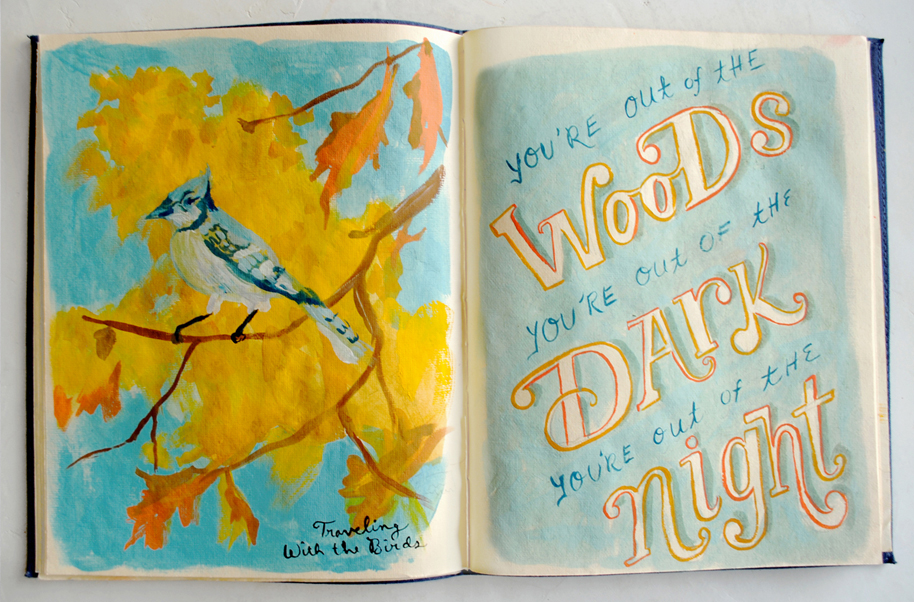 Traveling
With the Birds
YOU'RE out of tHE
WooDS
YOU'RE out OF tHE
DArK
YOU'RE out of tHE
night